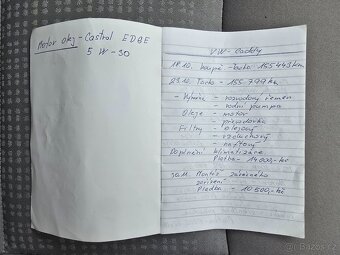 Motor olej - Castrol EDGE
5 W - 30
VW - Caddy
18.10. koupě - auta 155443 km
23.10. Tacho - 155 799 km
- Výměna - rozvodový řemen
- vodní pumpa
Oleje - motor
- převodovka
Filtry - olejový
- vzduchový
- naftový
Doplnění klimatizace
Platba - 14 000,- kč
30.11. Montáž tažného
zařízení
Platba - 10 500,- kč